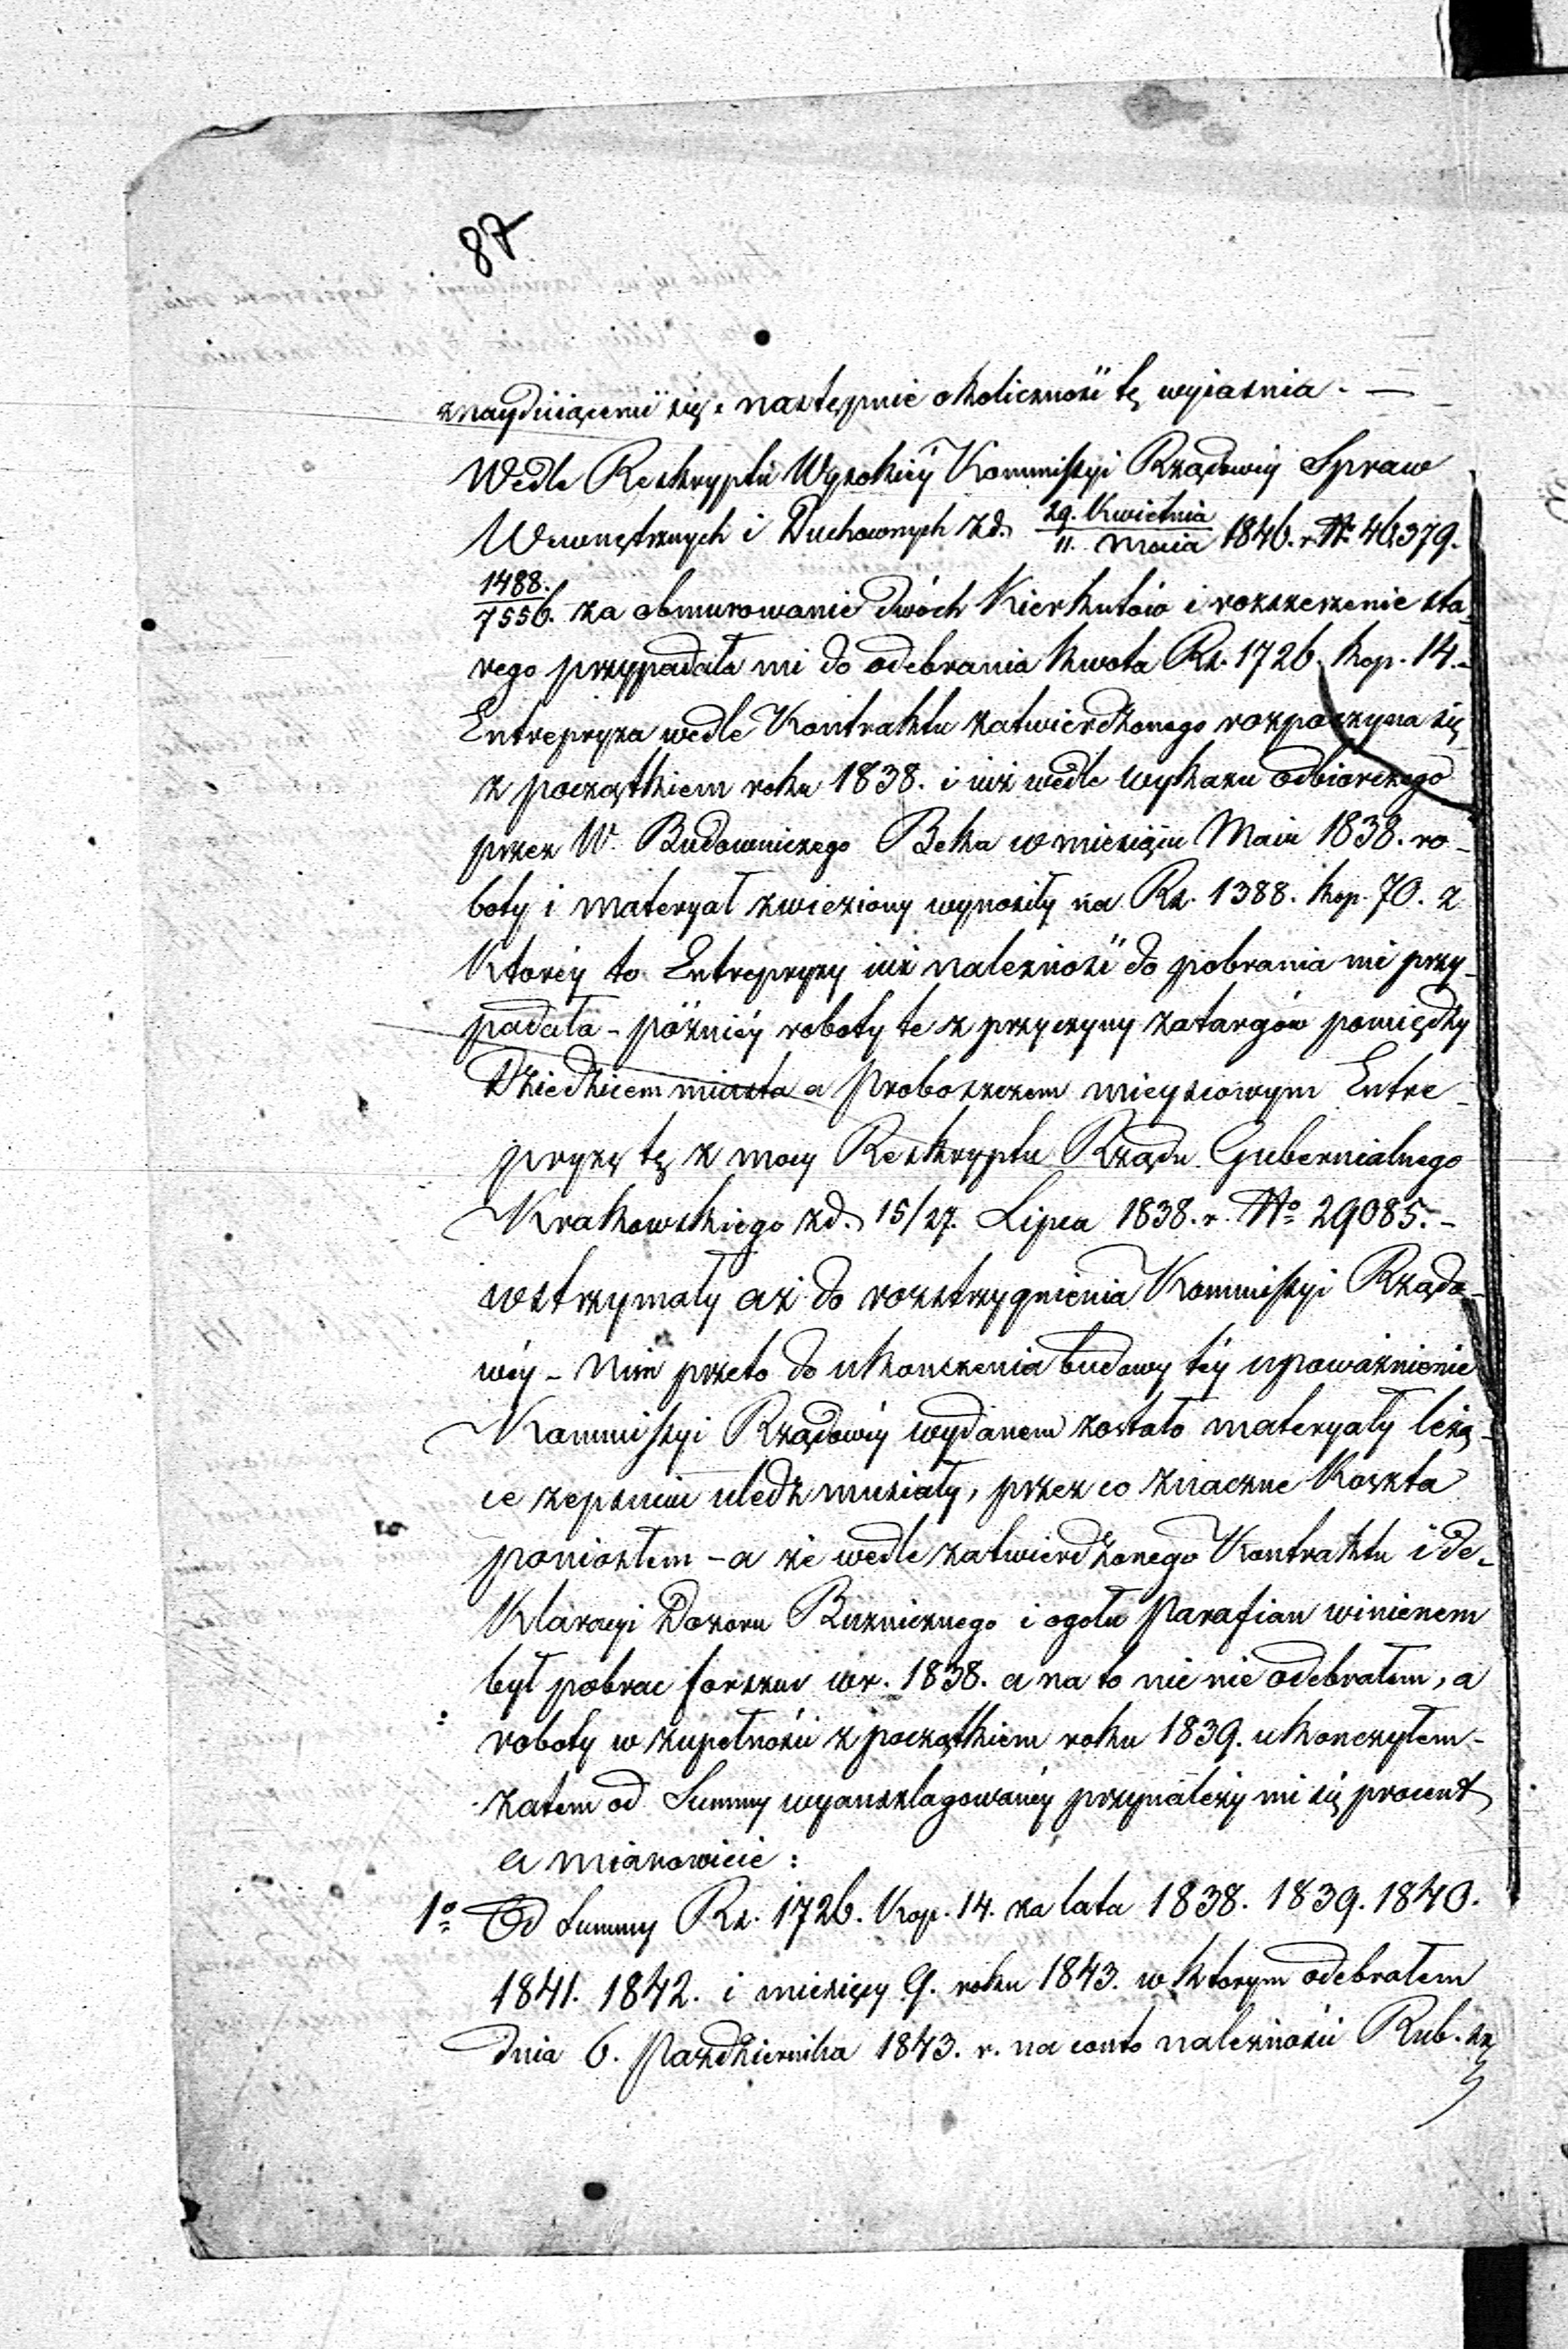 87
znayduiącemu się. następnie okoliczność tę wyiasnia. —
Wedle Reskryptu Wysokiéy Kommissyi Rządowéy Spraw
Wewnętrznych i Duchownych z d. 29. Kwietnia / 11. Maia 1846. r. No 46379.
1488. / 7556. za obmurowanie dwóch Kierkutów i rozszerzenie sta-
rego przypadała mi do odebrania kwota Rs. 1726. kop. 14.-
Entrepryza wedle Kontraktu zatwierdzonego rozpoczyna się
z początkiem roku 1838. i iuż wedle wykazu odbiorczego
przez W. Budowniczego Beka w miesiącu Maiu 1838. ro-
boty i materyał zwieziony wynosiły na Rs. 1388. kop. 70. z
Któréy to Entrepryzy iuż należność do pobrania mi przy-
padała - późniéy roboty te z przyczyny zatargów pomiędzy
Dziedzicem miasta a Proboszczem mieyscowym Entre-
pryzę tę z mocy Reskryptu Rządu Gubernialnego
Krakowskiego z d. 15/27. Lipca 1838. r. No 29085.-
wstrzymały aż do rozstrzygnienia Kommissyi Rządo-
wéy - Nim przeto do ukonczenia budowy téy upoważnienie
Kommissyi Rządowéy wydanem zostało materyały leżą-
ce zepsuciu uledz musiały, przez co znaczne Koszta
poniosłem - a że wedle zatwierdzonego Kontraktu i de-
Klaracyi Dozoru Bużnicznego i ogołu Parafian winienem
był pobrac forszus w r. 1838. a na to nic nie odebrałem, a
roboty w zupełności z początkiem roku 1839. ukonczyłem-
zatem od Summy wyanszlagowanéy przynależy mi się procent
a mianowicie:
1o Od Summy Rs. 1726. Kop. 14. za lata 1838. 1839. 1840.
1841. 1842. i miesięcy 9. roku 1843. w ktorym odebrałem
dnia 6. Pazdziernika 1843. r. na conto należności Rub. sr.